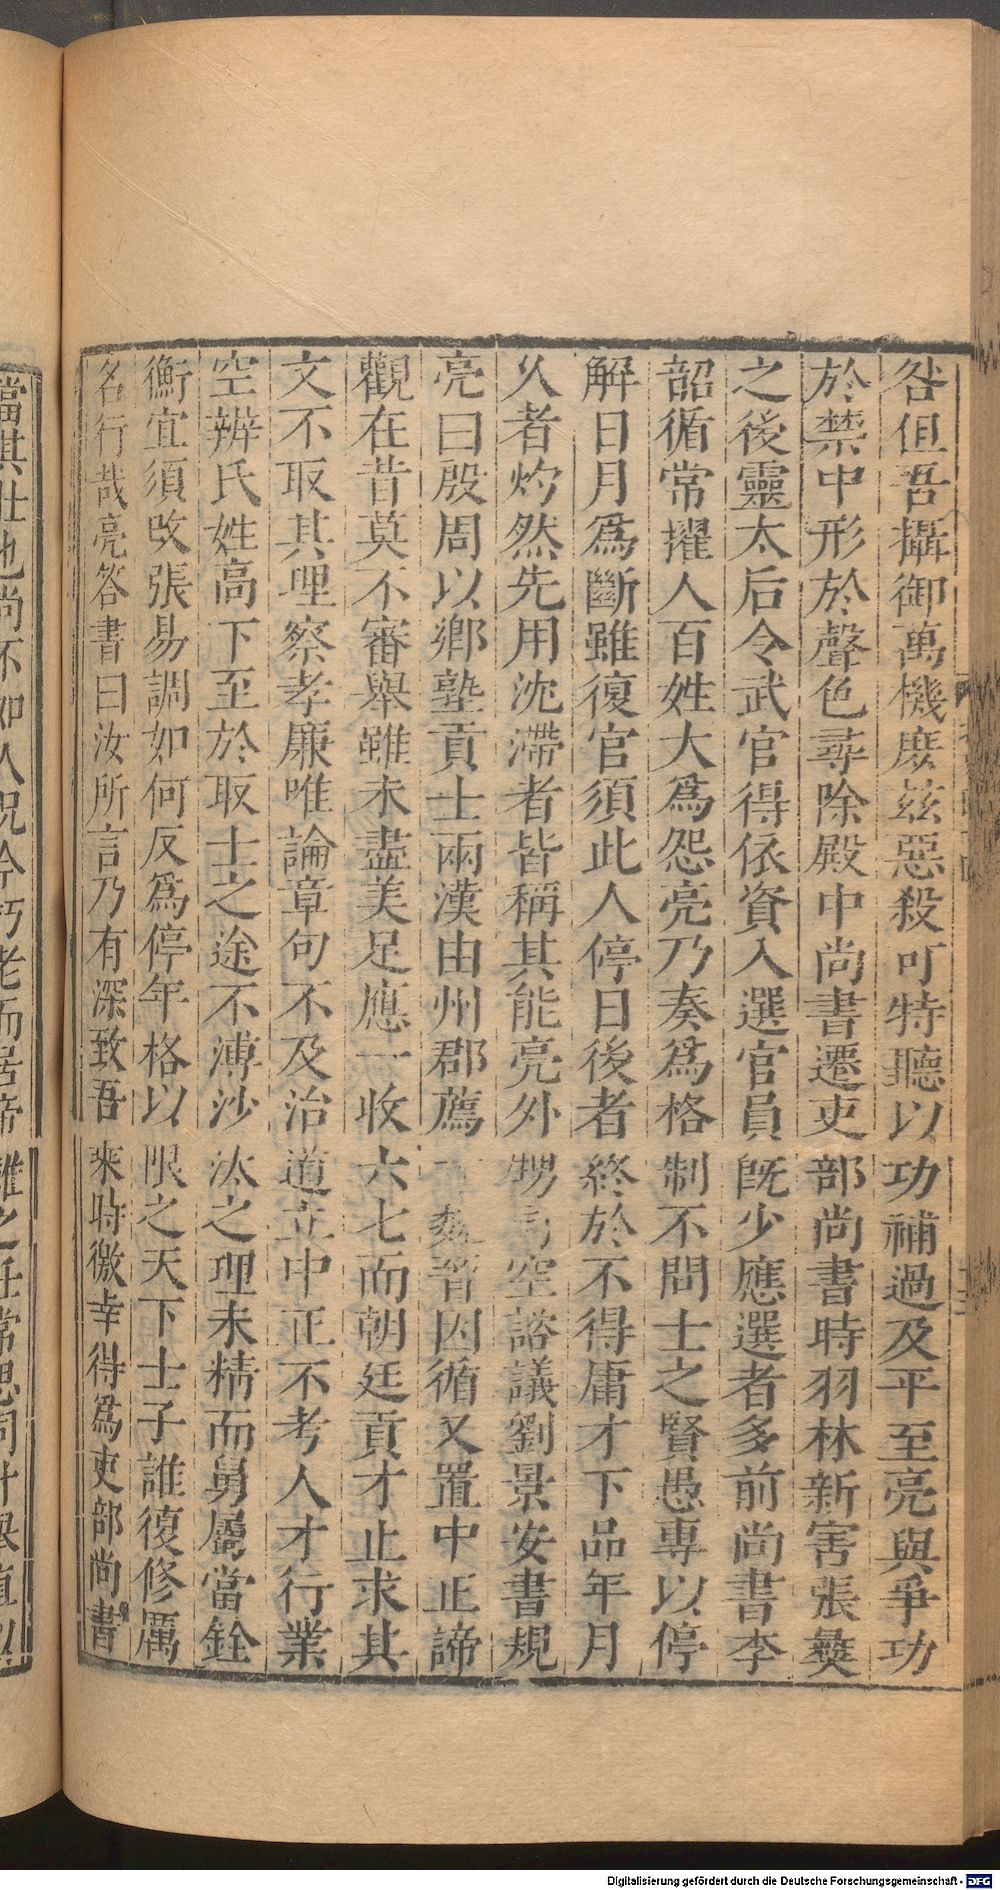 咎但吾攝御萬機庶茲惡殺可特聽以功補過及平至亮與爭功
於禁中形於聲色尋除殿中尚書遷吏部尚書時羽林新害張彝
之後靈太后令武官得依資入選官員旣少應選者多前尚書李
韶循常擢人百姓大爲怨亮乃奏爲格制不問士之賢愚專以停
解日月爲斷雖復官須此人停日後者終於不得庸才下品年月
久者灼然先用沈滯者皆稱其能亮外甥司空諮議劉景安書規
亮曰殷周以鄉塾貢士兩漢由州郡薦 魏晉因循又置中正諦
觀在昔莫不審舉雖未盡美足應一收六七而朝廷貢才止求其
文不取其理察孝廉唯論章句不及治道立中正不考人才行業
空辨氏姓高下至於取士之途不溥沙汰之理未精而舅屬當銓
衡宜須改張易調如何反爲停年格以限之天下士子誰復修厲
名行哉亮答書曰汝所言乃有深致吾來時徼幸得爲吏部尚書
當其壯也尚不如人況今朽老而居帝難之任常思同升舉直以
Digitalisierung gefördert durch die Deutsche Forschungsgemeinschaft - DFG